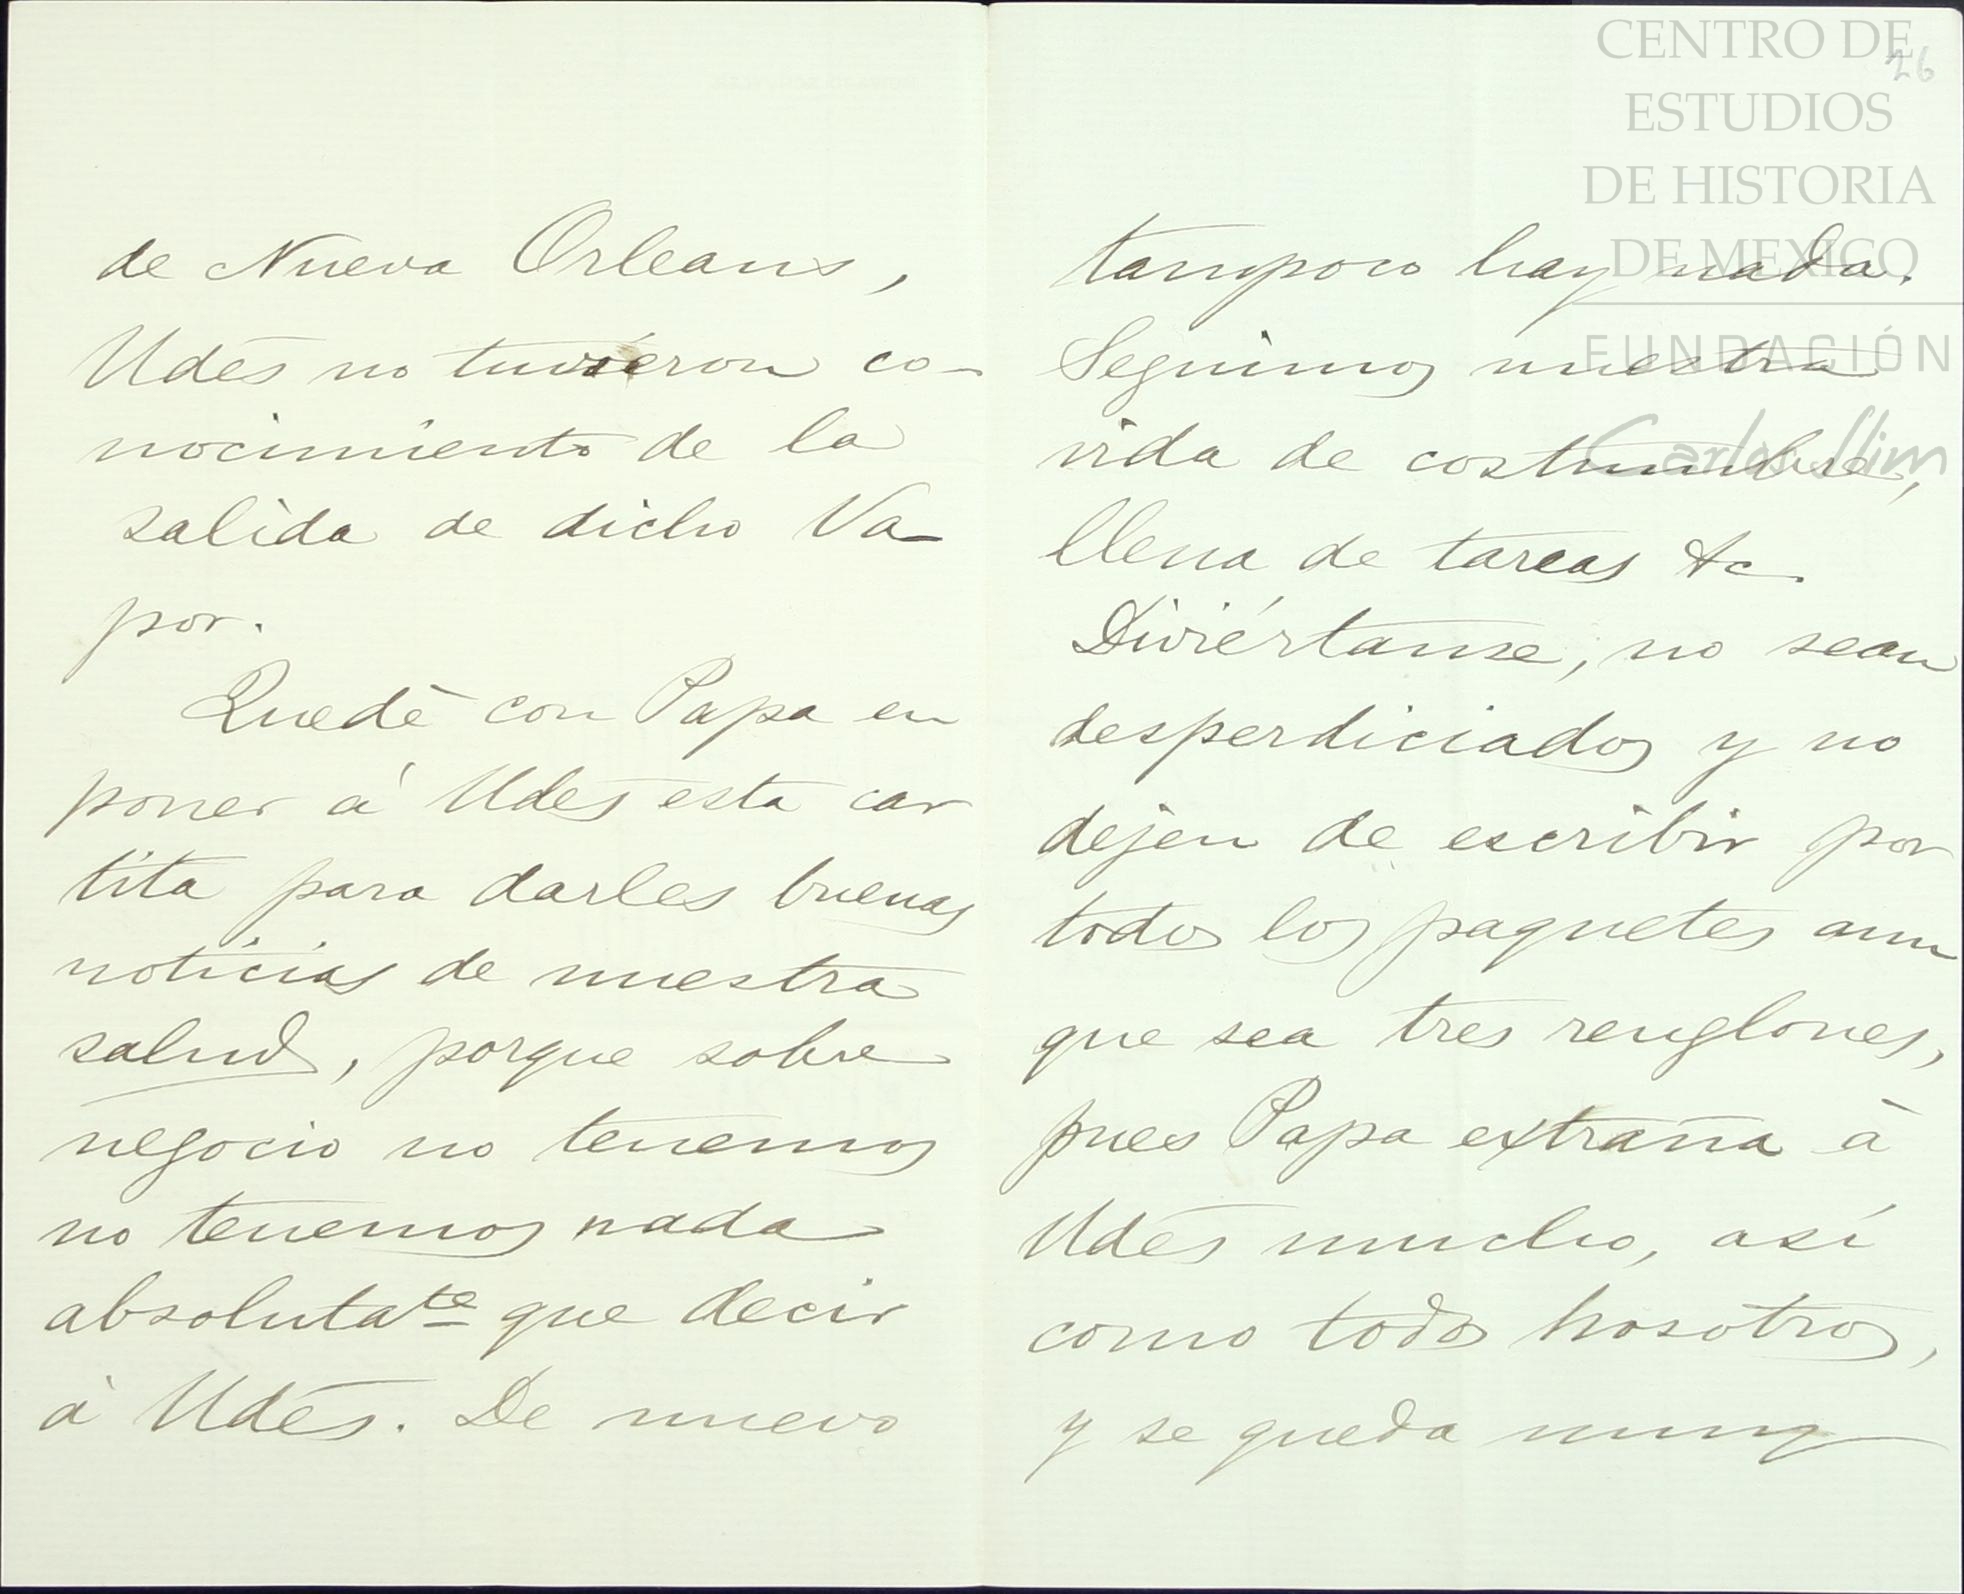 de Nueva Orleans,
Udes no tuvieron co-
nocimiento de la
salida de dicho Va-
por.
Quedé con Papa en
poner á Udes esta car
tita para darles buenas
noticias de nuestra
salud, porque sobre
negocio no tenemos
no tenemos nada
absolutate que decir
á Udes. De nuevo
26
tampoco hay nada.
Seguimos nuestra
vida de costumbre,
llena de tareas &c.
Diviértanse, no sean
desperdiciados y no
dejen de escribir por
todos los paquetes aun
que sea tres renglones,
pues Papa extraña à
Udes mucho, así
como todos nosotros,
y se queda muy
CENTRO DE
ESTUDIOS
DE HISTORIA
DE MEXICO
FUNDACIÓN
Carlos Slim